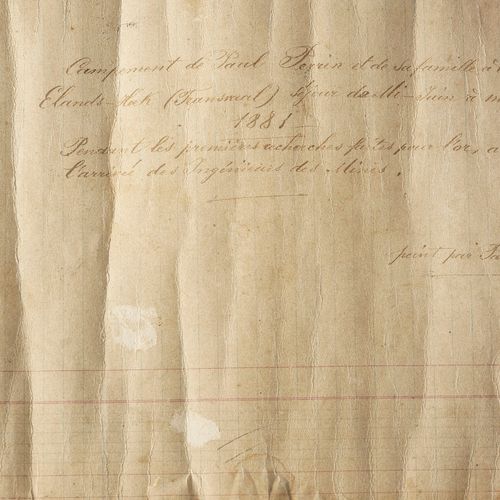 Campement de Paul Perrin et de sa famille à
Elands-Hoek (Transvaal) séjour de Mi-Juin à
1881
Pendant les premières recherches faites pour l'or, a
l'arrivée des Ingénieurs des Mines.
peint par